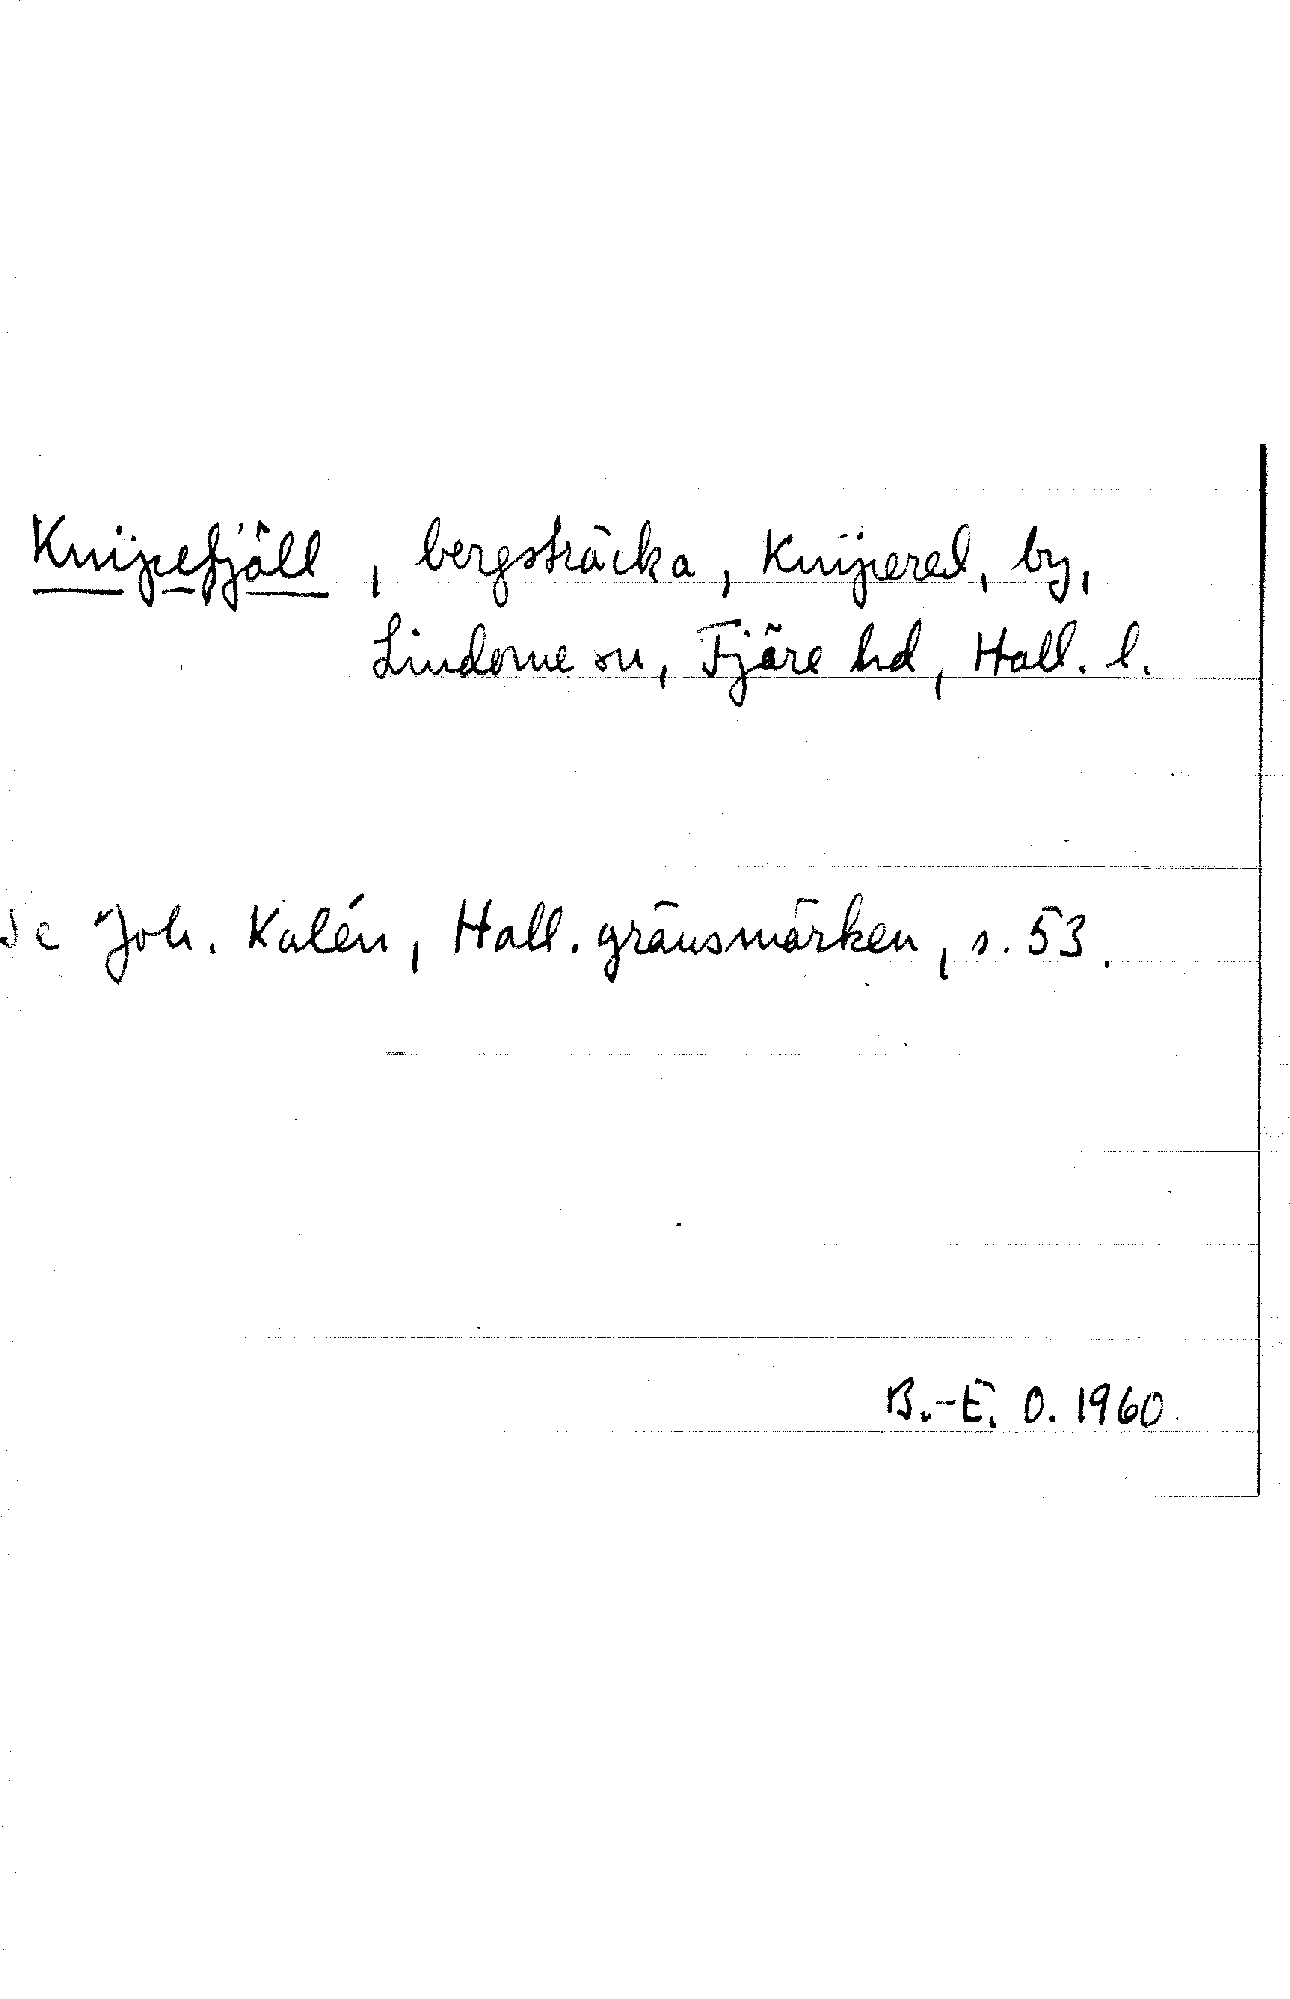 Knipefjäll, bergsträcka, Knipered, by,
Lindome sn, Fjäre hd, Hall. l.
Se Joh. Kalén, Hall. gränsmärken, s. 53.
B.-E. O. 1960.